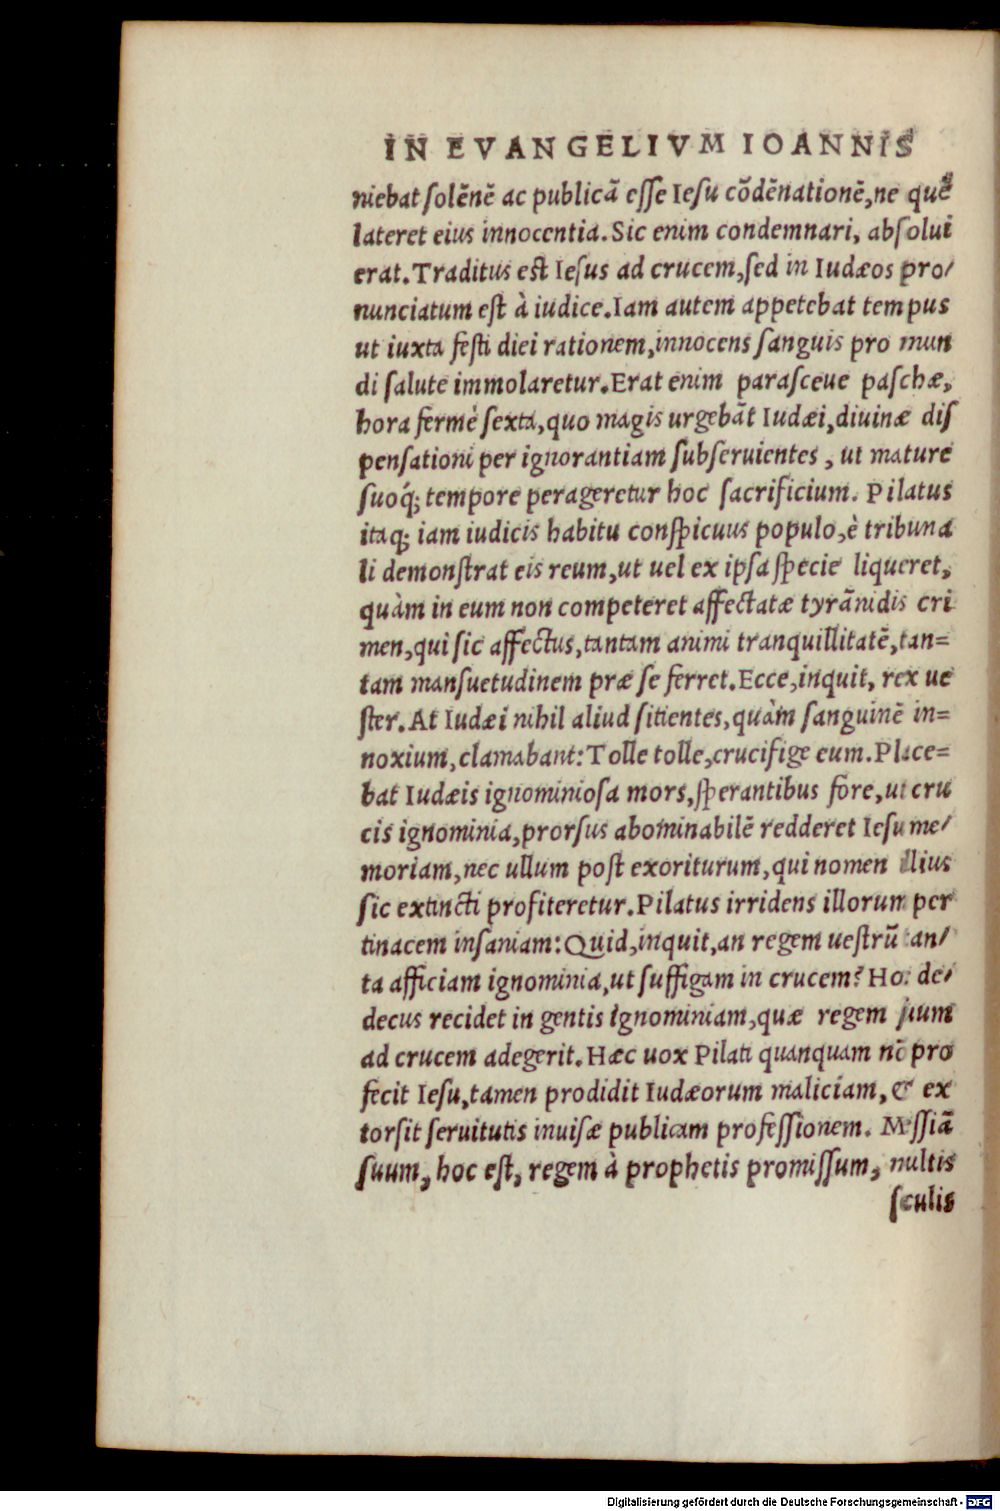 IN EVANGELIVM IOANNIS
niebat ſolẽnẽ ac publicã eſſe Ieſu cõdẽnationẽ, ne quẽ
lateret eius innocentia. Sic enim condemnari, abſolui
erat. Traditus eſt Ieſus ad crucem, ſed in Iudæos pro/
nunciatum eſt à iudice. Iam autem appetebat tempus
ut iuxta feſti diei rationem, innocens ſanguis pro mun
di ſalute immolaretur. Erat enim paraſceue paſchæ,
hora fermè ſexta, quo magis urgebãt Iudæi, diuinæ diſ
penſationi per ignorantiam ſubſeruientes, ut mature
ſuoq́; tempore perageretur hoc ſacrificium. Pilatus
itaq; iam iudicis habitu conſpicuus populo, è tribuna
li demonſtrat eis reum, ut uel ex ipſa ſpecie liqueret,
quàm in eum non competeret affectatæ tyrãnidis cri
men, qui ſic affectus, tantam animi tranquillitatẽ, tan=
tam manſuetudinem præ ſe ferret. Ecce, inquit, rex ue
ſter. At Iudæi nihil aliud ſitientes, quàm ſanguinẽ in=
noxium, clamabant: Tolle tolle, crucifige eum. Place=
bat Iudæis ignominioſa mors, ſperantibus fore, ut cru
cis ignominia, prorſus abominabilẽ redderet Ieſu me/
moriam, nec ullum poſt exoriturum, qui nomen illius
ſic extincti profiteretur. Pilatus irridens illorum per
tinacem inſaniam: Quid, inquit, an regem ueſtrũ tan/
ta afficiam ignominia, ut ſuffigam in crucem? Hoc de/
decus recidet in gentis ignominiam, quæ regem ſuum
ad crucem adegerit. Hæc uox Pilati quanquam nõ pro
fecit Ieſu, tamen prodidit Iudæorum maliciam, & ex
torſit ſeruitutis inuiſæ publicam profeſſionem. Meſſiã
ſuum, hoc eſt, regem à prophetis promiſſum, multis
ſeculis
Digitalisierung gefördert durch die Deutsche Forschungsgemeinschaft - DFG